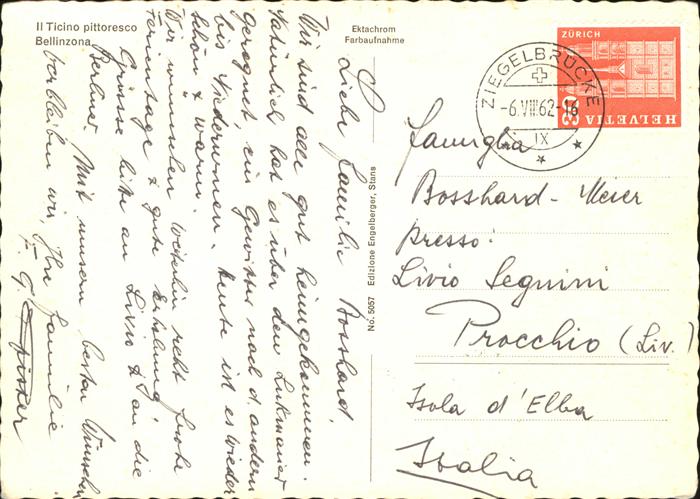 Il Ticino pittoresco
Bellinzona
Ektachrom
Farbaufnahme
No. 5057 Edizione Engelberger, Stans
Liebe Familie Bosshard,
Wir sind alle gut heimgekommen.
Natürlich hat es über den Lukmanier
geregnet ein Gewitter nach d. andern
bis Niederurnen. Heute ist es wieder
schön & warm.
Wir wünschen weiterhin recht frohe
Ferientage & gute Erholung.
Grüsse bitte an Livio & an die
Berliner. Mit unsern besten Wünschen
verbleiben wir, Ihre Familie
F. G. Pfister
ZIEGELBRÜCKE
-6.VIII.62-16
IX
ZÜRICH
HELVETIA
Famiglia
Bosshard-Meier
presso:
Livio Segnini
Procchio (Liv.)
Isola d'Elba
Italia